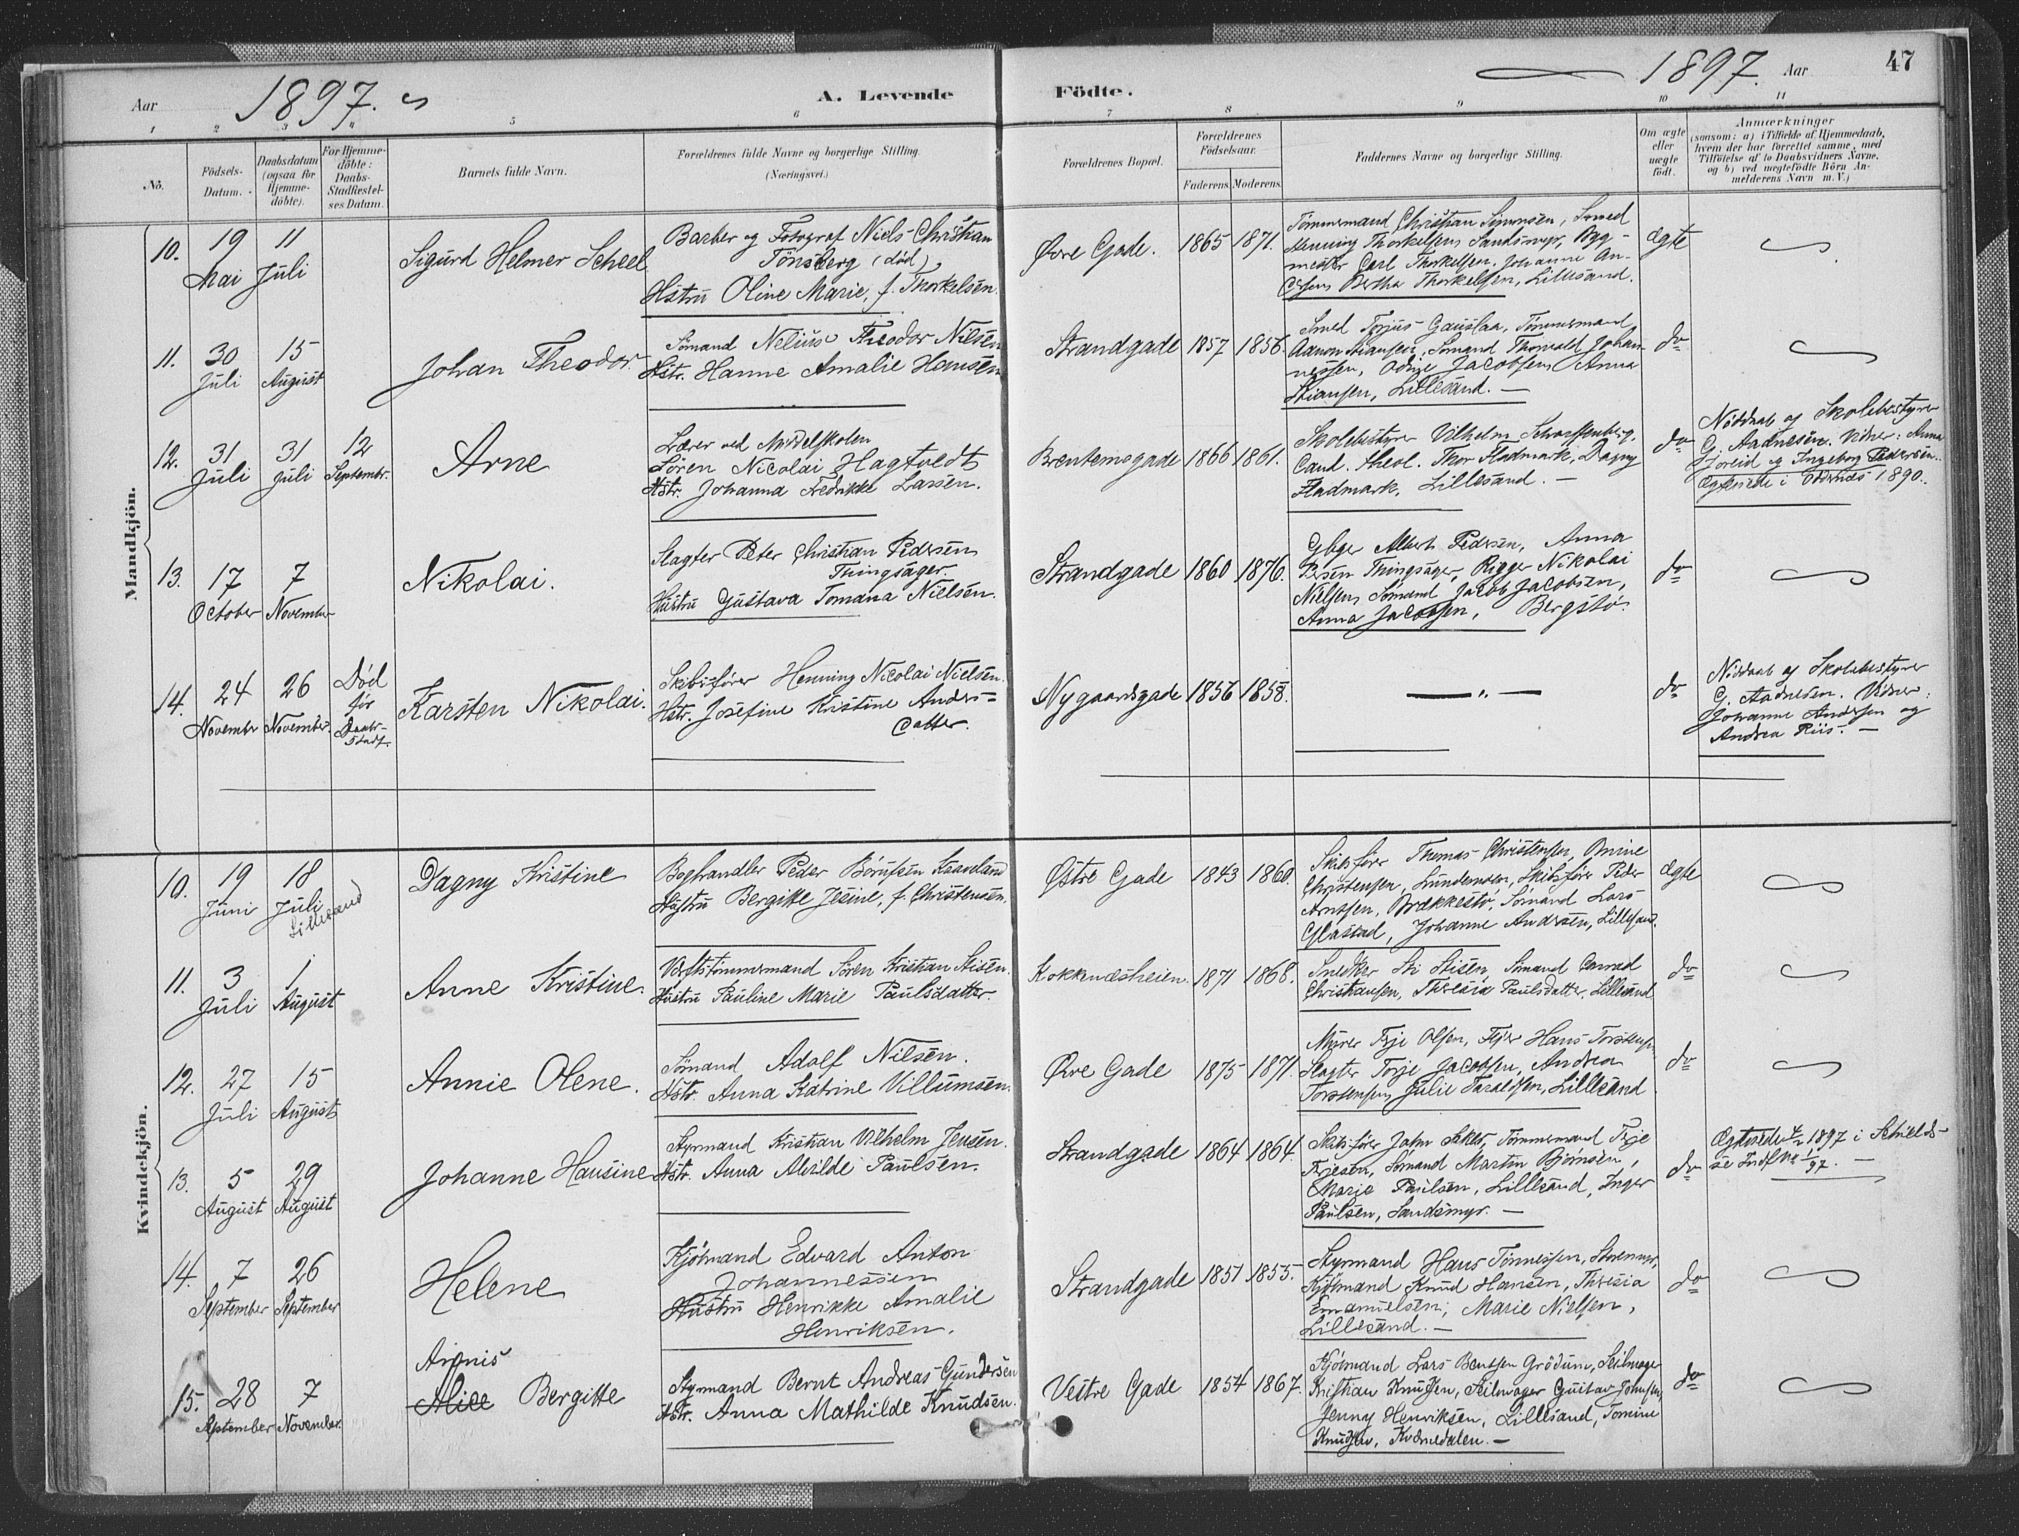 Aar 1897. A. Levende Födte. 1897. Aar 47
1 2 3 4 5 6 7 8 9 10 11
No.
Födsels-Datum.
Daabsdatum (ogsaa for Hjemme-döbte).
For Hjemme-döbte: Daabs-Stadfæstel-ses Datum.
Barnets fulde Navn.
Forældrenes fulde Navne og borgerlige Stilling.
(Næringsvei.)
Forældrenes Bopæl.
Forældrenes Födselsaar.
Faderens. Moderens.
Faddernes Navne og borgerlige Stilling.
Om ægte eller uægte födt.
Anmærkninger
(saasom: a) i Tilfælde af Hjemmedaab,
hvem der har forrettet samme, med
Tilföielse af to Daabsvidners Navne,
og b) ved uægtefödte Börn An-
melderens Navn m. V.)
Mandkjön.
10. 19 Mai 11 Juli
Sigurd Helmer Scheel
Barber og Fotograf Niels Christian
Tönsberg (död)
Hstru Oline Marie, f. Thorkelsen.
Øvre Gade. 1865 1871.
Tömmermand Christian Simonsen, Smed
Henning Thorkelsen Sandsmyr, Byg-
mester Carl Thorkelsen, Johanne
Bertha Thorkelsen, Lillesand.
ægte
11. 30 Juli 15 August
Johan Theodor.
Sömand Nelius Theodor Nilsen
Hstr. Hanne Amalie Hansen
Strandgade 1857 1856.
Smed Torjus Gauslaa, Tömmermand
Aanon Stiansen, Sömand Thorvald Johan-
nessen, Jacobsen, Anna
Stiansen, Lillesand. —
do
12. 31 Juli 31 Juli 12 Septembr.
Arne
Lærer ved Middelskolen
Sören Nicolai Hagtvedt
Hstr. Johanna Fredrikke Larsen.
Brentemogade 1866 1861.
Skolebestyrer Vilhelm
Cand. theol. Thor Fladmark, Dagny
Fladmark, Lillesand. —
do
Nöddaab af Skolebestyrer
G. Aadnesen. Vidner: Anna
Gjoreid og Ingeborg Pedersen.
Ægteviede i Oddernes 1890.
13. 17 October 7 November
Nikolai.
Slagter Peter Christian Pedersen
Thingsager
Hustru Gustava Tomana Nielsen.
Strandgade 1860 1876.
Albert Pedersen, Anna
Thingsager, Rigger Nikolai
Nielsen, Sömand Jacob Jacobsen,
Anna Jacobsen, Bergstö.
do
14. 24 November 26 November. Död för Daabs-Stadf.
Karsten Nikolai.
Skibsförer Henning Nicolai Nielsen.
Hstr. Josefine Kristine Anders=
datter.
Nygaardsgade 1856 1858.
— „ —
do
Nöddaab af Skolebestyrer
G. Aadnesen. Vidner:
Johanne Andersen og
Andrea Riis. —
Kvindekjön.
10. 19 Juni 18 Juli Lillesand
Dagny Kristine
Boghandler Peder Börufsen Kaaveland
Hustru Bergitte Jesine, f. Christensen.
Østre Gade 1843 1860.
Skibsförer Thomas Christensen, Omine
Christensen, Lundemoen, Skibsförer Peder
Arntsen, Brækkestö, Sömand Lars
Glastad, Johanne Andersen, Lillesand.
ægte
11. 3 Juli 1 August
Anne Kristine.
Verftstömmermand Sören Kristian Stisen.
Hustru Pauline Marie Paulsdatter.
Kokkenæsheien. 1871 1868.
Snedker Sti Stisen, Sömand Conrad
Christiansen, Theresia Paulsdatter, Lillesand
do
12. 27 Juli 15 August
Annie Olene.
Sömand Adolf Nilsen.
Hstr. Anna Katrine Villumsen.
Øvre Gade 1875 1871.
Murer Terje Olsen, Hans Torstensen
Slagter Terje Jacobsen, Andrea
Torstensen, Julie Taraldsen, Lillesand.
do
13. 5 August 29 August
Johanne Hansine
Styrmand Kristian Vilhelm Jensen.
Hstr. Anna Alvilde Paulsen.
Strandgade 1864 1864.
Skibsförer John Tömmermand Terje
Terjesen, Sömand Martin Björnsen,
Marie Paulsen, Lillesand, Inger
Paulsen, Sandsmyr. —
do
1897 i
14. 7 September 26 September
Helene
Kjöbmand Edvard Anton
Johannessen
Hustru Henrikke Amalie
Henriksen.
Strandgade 1851 1855.
Styrmand Hans Tönnessen,
Kjöbmand Knud Hansen, Theresia
Emanuelsen, Marie Nielsen,
Lillesand. —
do
15. 28 September 7 November.
Agnis
Alice Bergitte
Styrmand Bernt Andreas Gundersen
Hstr. Anna Mathilde Knudsen.
Vestre Gade 1854 1867.
Kjöbmand Lars Bentsen Grödum, Seilmager
Kristian Knudsen, Seilmager Gustav Johnsen,
Jenny Henriksen, Lillesand, Tomine
Knudsen, Kvænedalen. —
do